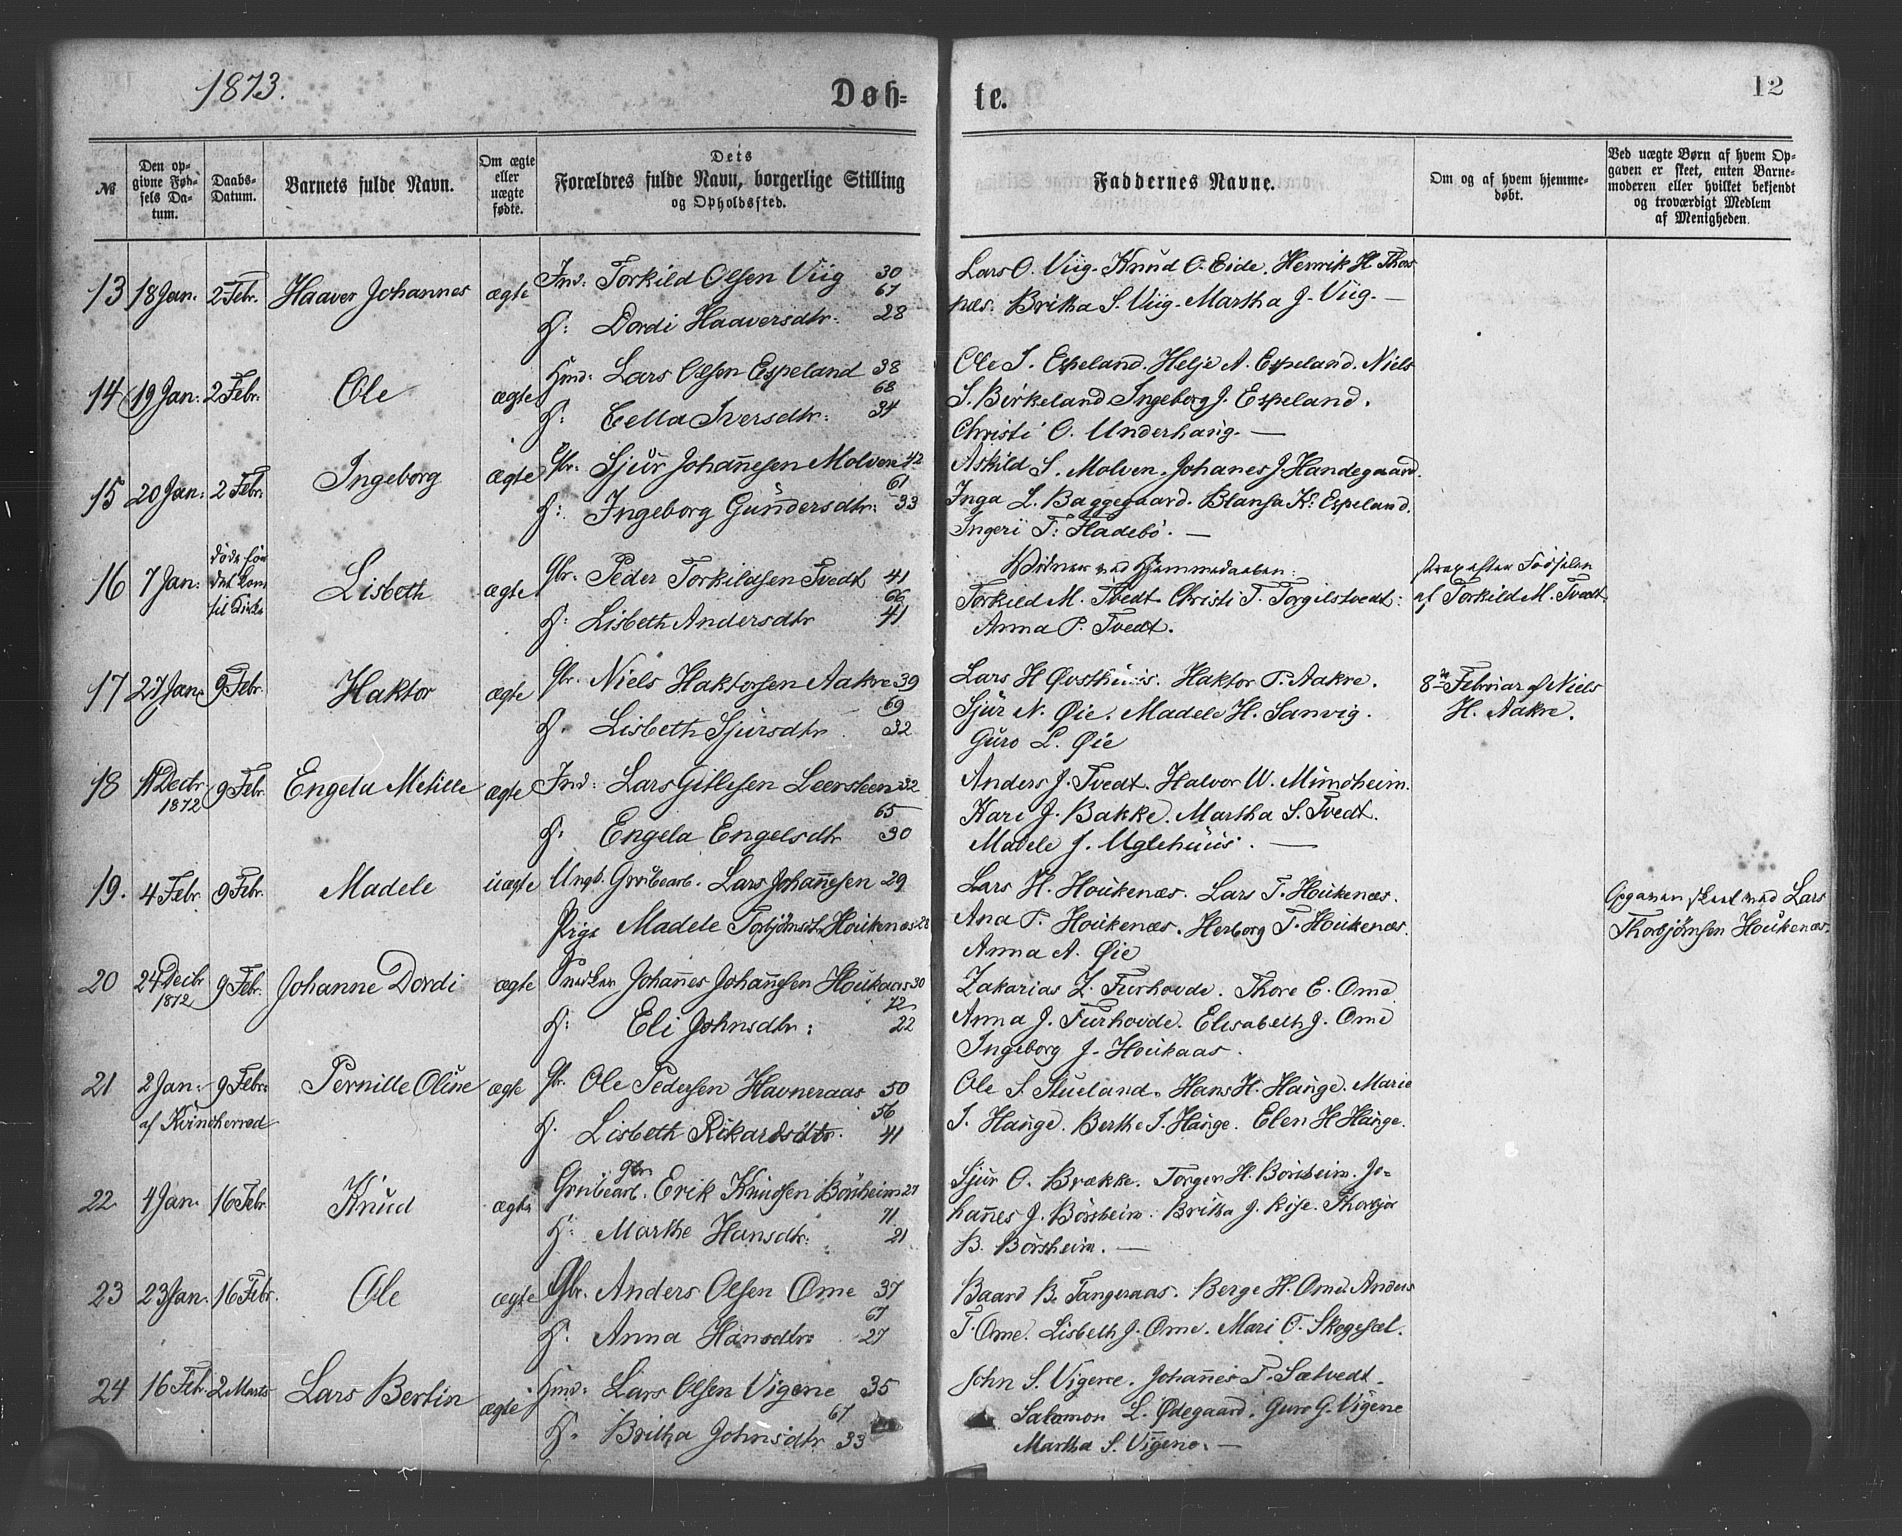 1873.
Døb=
te.
12
№
Den op-
givne Føb-
sels Da-
tum.
Daabs-
Datum.
Barnets fulde Navn.
Om ægte
eller
uægte
fødte.
Dets
Forældres fulde Navn, borgerlige Stilling
og Opholdssted.
Faddernes Navne.
Om og af hvem hjemme-
døbt.
Ved uægte Børn af hvem Op-
gaven er skeet, enten Barne-
moderen eller hvilket bekjendt
og troværdigt Medlem
af Menigheden.
13 18 Jan. 2 Febr. Haaver Johannes ægte Ind: Torkild Olsen Viig 30
67
H: Dordi Haaversdtr: 28
Lars O. Viig. Knud O. Eide. Henrik H. Thors
næs. Britha S. Viig. Martha J. Viig. —
14 19 Jan: 2 Febr. Ole ægte Hmd: Lars Olsen Espeland 38
68
H: Cella Iversdtr: 34
Ole I. Espeland. Helje A. Espeland. Niels
S. Birkeland. Ingeborg J. Espeland.
Christi O. Underhaug. —
15 20 Jan: 2 Febr. Ingeborg ægte Gbr. Sjur Johannesen Molven 42
61
H: Ingeborg Gundersdtr: 33
Askild S. Molven. Johanes J Handegaard.
Inga L. Baggegaard. Blansa K. Espeland.
Ingeri T: Fladebø. —
16 7 Jan: døde før det kom til Kirke Lisbeth ægte Gbr. Peder Torkildsen Tvedt 41
66
H: Lisbeth Andersdtr 41
Vidner ved Hjemmedaaben:
Torkild M. Tvedt. Christi T. Torgilstvedt:
Anna P. Tvedt.
strax efter Fødselen
af Torkild M. Tvedt.
17 27 Jan: 9 Febr. Haktor ægte Gbr. Niels Haktorsen Aakre 39
69
H. Lisbeth Sjursdtr 32
Lars H Østhuus. Haktor T. Aakre.
Sjur N. Øie. Madele H. Sanvig.
Guro L. Øie
8de Februar af Niels
H. Aakre.
18 11 Decbr 1872 9 Febr. Engela Metille ægte Ind: Lars Gitlesen Leersteen 32
65
H: Engela Engelsdtr 30
Anders J. Tvedt. Halvor W. Mundheim.
Kari J. Bakke. Martha S. Tvedt.
Madele J. Uglehuus. —
19. 4 Febr. 9 Febr. Madele uægte Ungk. Grubearb. Lars Johannesen 29
Pige Madele Torbjørnsdtr Houkenæs 28
Lars H. Houkenæs. Lars T. Houkenæs.
Ana T. Houkenæs. Herborg T. Houkenæs.
Anna A. Øie
Opgaven skeet ved Lars
Thorbjørnsen Houkenæs.
20 24 Decbr 1872 9 Febr. Johanne Dordi ægte Snedker Johannes Johannesen Houkaas 30
72
H: Eli Johnsdtr: 22
Zakarias Z. Furhovde. Thore E. Ome
Anna J. Furhovde. Elisabeth J. Ome
Ingeborg J. Houkaas.
21 2 Jan: 9 Febr. Pernille Oline ægte Gbr. Ole Pedersen Havneraas 50
af Kvindherred 56
H. Lisbeth Rikardsdtr. 41
Ole S. Stueland. Hans H. Hauge. Marie
S. Hauge. Berthe S. Hauge. Elen H Hauge.
22 4 Jan. 16 Febr. Knud ægte Grubearb. Gbr. Erik Knudsen Børsheim 27
71
H: Marthe Hansdtr: 21
Sjur O. Brække. Torger H. Børsheim. Jo-
hannes J. Børsheim. Britha J. Rise. Thorbjør
B. Børsheim. —
23 23 Jan. 16 Febr. Ole ægte Gbr. Anders Olsen Ome 37
67
H. Anna Hansdtr: 27
Baard B. Tangeraas. Berge H. Ome. Anders
T. Ome. Lisbeth J. Ome. Mari O. Skogesæl.
24 16 Feb. 2 Marts Lars Bertin ægte Hmd: Lars Olsen Vigene 35
67
H. Britha Johnsdtr 33
John S. Vigene. Johannes T. Sætvedt.
Salomon L. Ødegaard. Guro G. Vigene
Martha S. Vigene. —